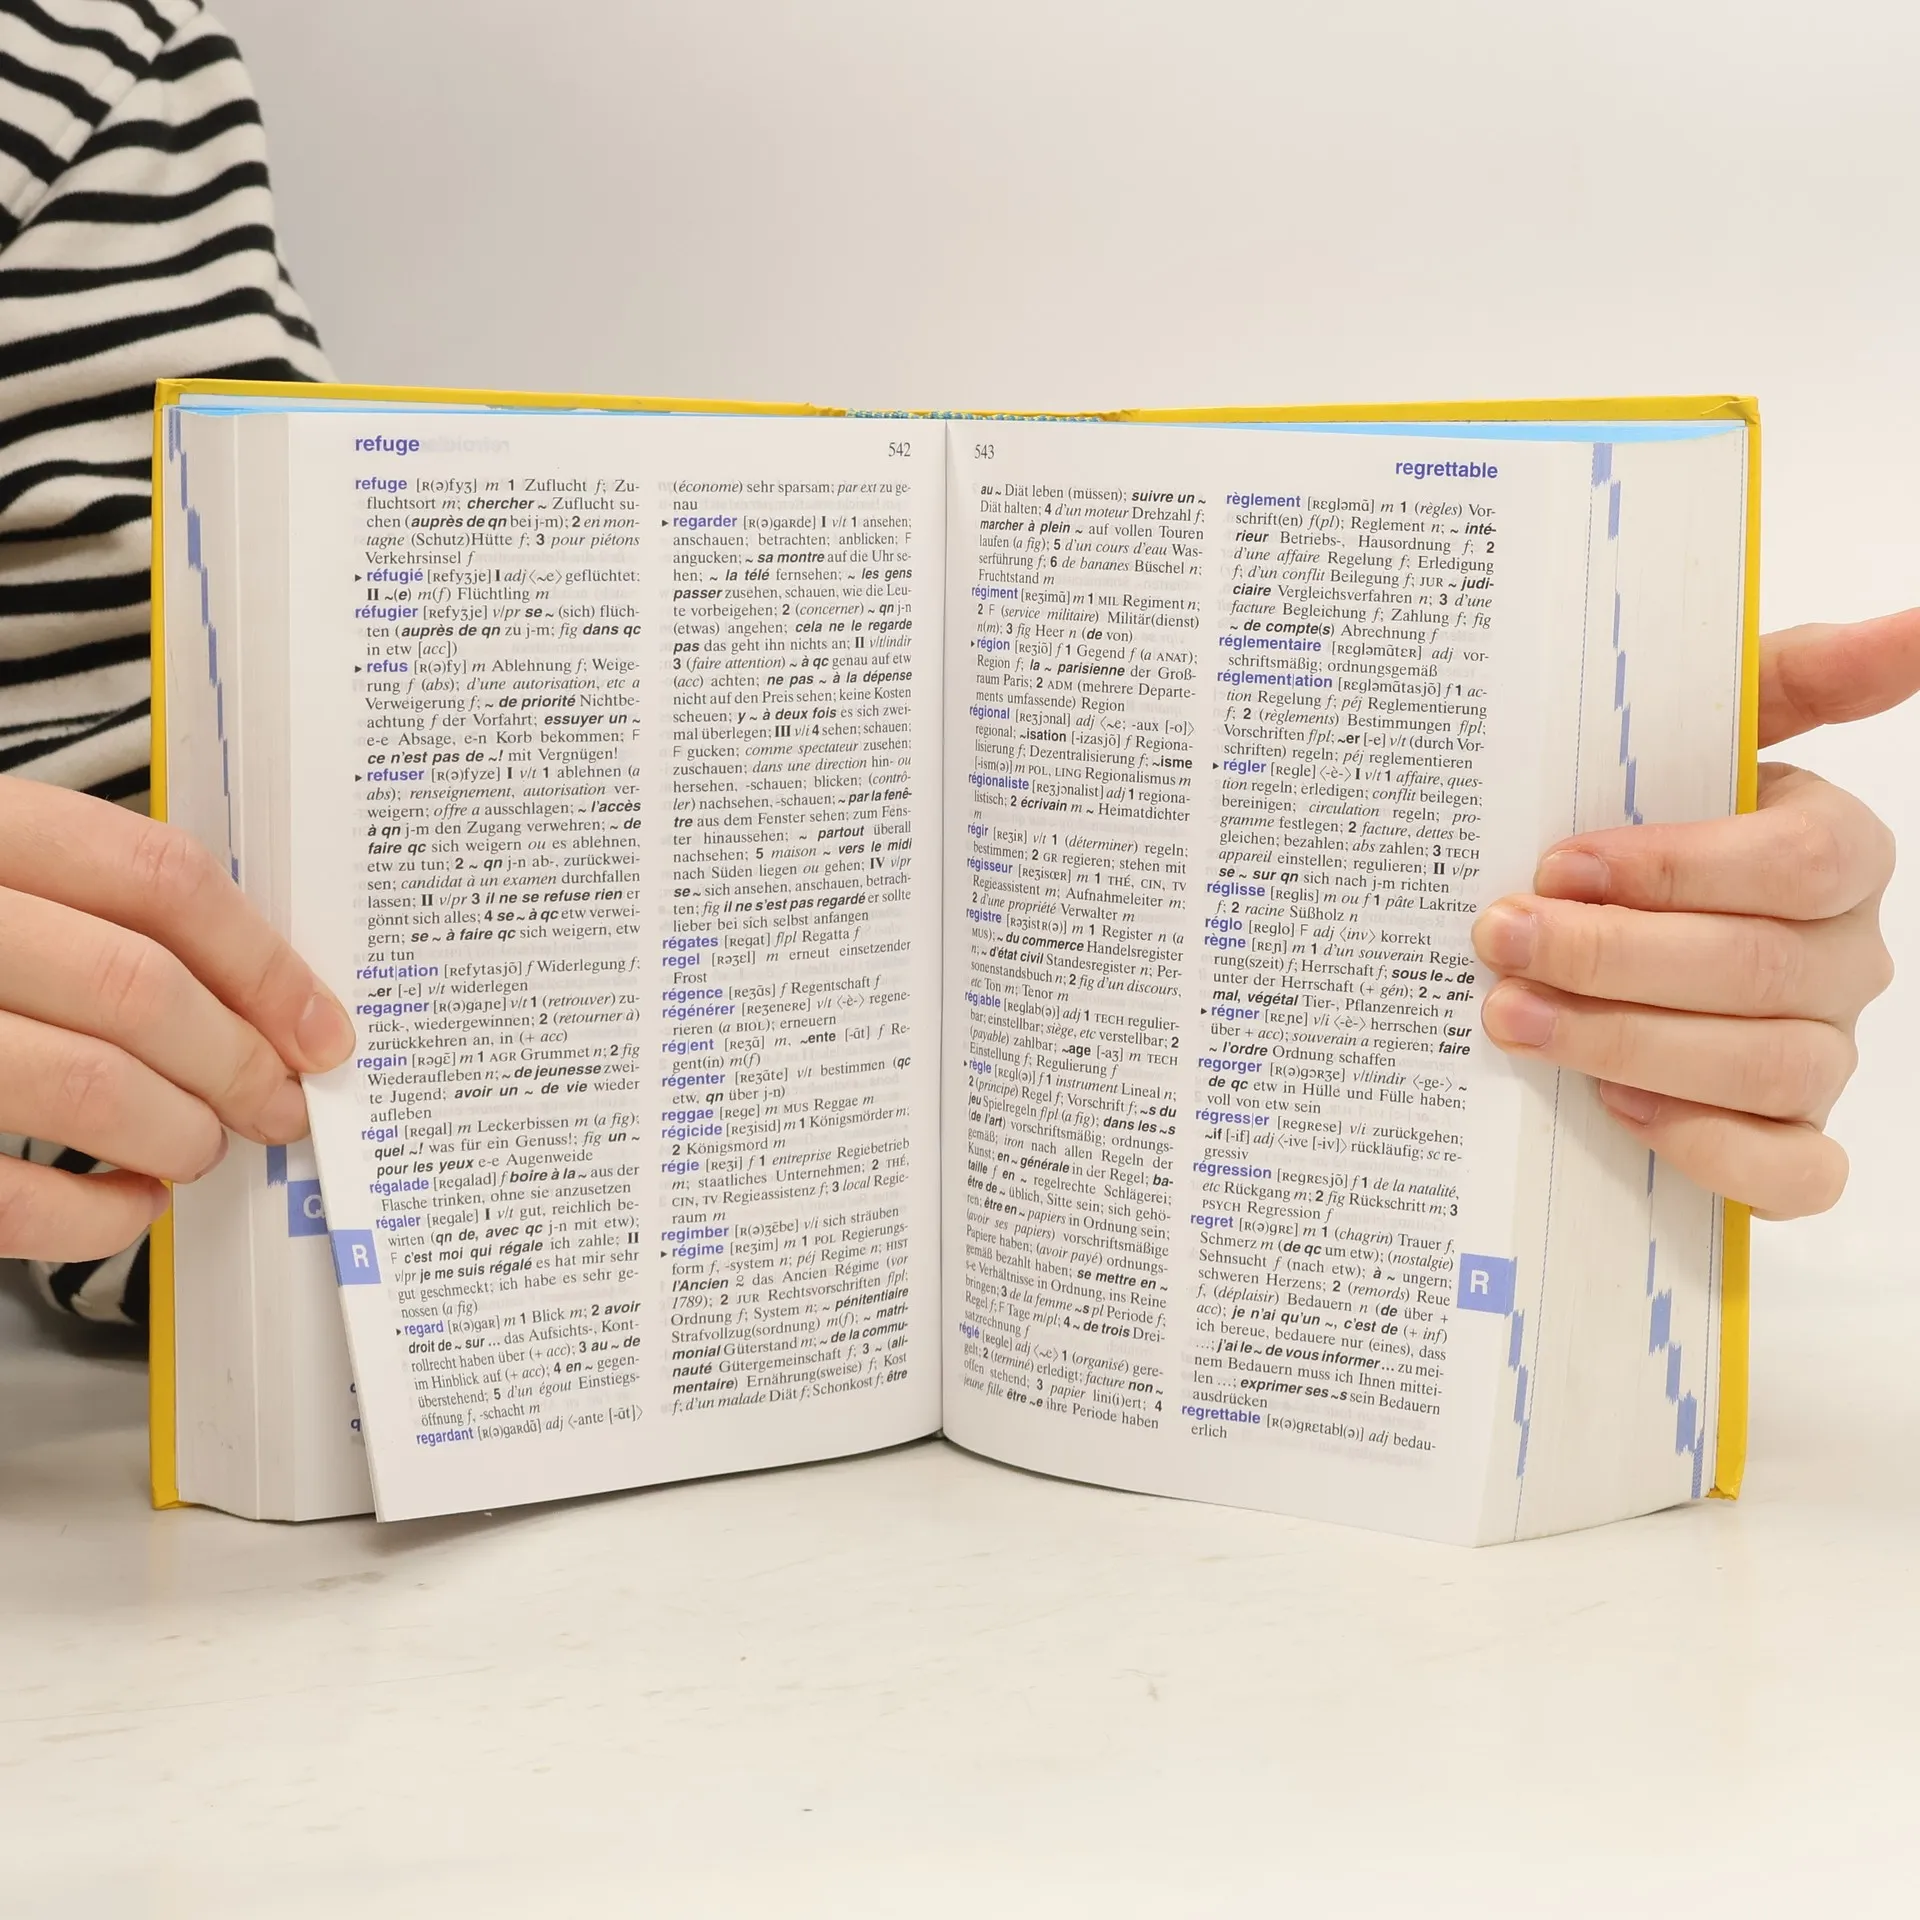 refuge
542
refuge [R(ə)fyʒ] m 1 Zuflucht f; Zu-
fluchtsort m; chercher ~ Zuflucht su-
chen (auprès de qn bei j-m); 2 en mon-
tagne (Schutz)Hütte f; 3 pour piétons
Verkehrsinsel f
▸ réfugié [Refyʒje] I adj ⟨~e⟩ geflüchtet;
II ~(e) m(f) Flüchtling m
réfugier [Refyʒje] v/pr se ~ (sich) flüch-
ten (auprès de qn zu j-m; fig dans qc
in etw [acc])
▸ refus [R(ə)fy] m Ablehnung f; Weige-
rung f (abs); d'une autorisation, etc a
Verweigerung f; ~ de priorité Nichtbe-
achtung f der Vorfahrt; essuyer un ~
e-e Absage, e-n Korb bekommen; F
ce n'est pas de ~! mit Vergnügen!
▸ refuser [R(ə)fyze] I v/t 1 ablehnen (a
abs); renseignement, autorisation ver-
weigern; offre a ausschlagen; ~ l'accès
à qn j-m den Zugang verwehren; ~ de
faire qc sich weigern ou es ablehnen,
etw zu tun; 2 ~ qn j-n ab-, zurückwei-
sen; candidat à un examen durchfallen
lassen; II v/pr 3 il ne se refuse rien er
gönnt sich alles; 4 se ~ à qc etw verwei-
gern; se ~ à faire qc sich weigern, etw
zu tun
réfut|ation [Refytasjõ] f Widerlegung f;
~er [-e] v/t widerlegen
regagner [R(ə)gaɲe] v/t 1 (retrouver) zu-
rück-, wiedergewinnen; 2 (retourner à)
zurückkehren an, in (+ acc)
regain [Rəgɛ̃] m 1 AGR Grummet n; 2 fig
Wiederaufleben n; ~ de jeunesse zwei-
te Jugend; avoir un ~ de vie wieder
aufleben
régal [Regal] m Leckerbissen m (a fig);
quel ~! was für ein Genuss!; fig un ~
pour les yeux e-e Augenweide
régalade [Regalad] f boire à la ~ aus der
Flasche trinken, ohne sie anzusetzen
régaler [Regale] I v/t gut, reichlich be-
wirten (qn de, avec qc j-n mit etw);
F c'est moi qui régale ich zahle; II
v/pr je me suis régalé es hat mir sehr
gut geschmeckt; ich habe es sehr ge-
nossen (a fig)
▸ regard [R(ə)gaR] m 1 Blick m; 2 avoir
droit de ~ sur ... das Aufsichts-, Kont-
rollrecht haben über (+ acc); 3 au ~ de
im Hinblick auf (+ acc); 4 en ~ gegen-
überstehend; 5 d'un égout Einstiegs-
öffnung f, -schacht m
regardant [R(ə)gaRdɑ̃] adj ⟨-ante [-ɑ̃t]⟩
(économe) sehr sparsam; par ext zu ge-
nau
▸ regarder [R(ə)gaRde] I v/t 1 ansehen;
anschauen; betrachten; anblicken; F
angucken; ~ sa montre auf die Uhr se-
hen; ~ la télé fernsehen; ~ les gens
passer zusehen, schauen, wie die Leu-
te vorbeigehen; 2 (concerner) ~ qn j-n
(etwas) angehen; cela ne le regarde
pas das geht ihn nichts an; II v/t/indir
3 (faire attention) ~ à qc genau auf etw
(acc) achten; ne pas ~ à la dépense
nicht auf den Preis sehen; keine Kosten
scheuen; y ~ à deux fois es sich zwei-
mal überlegen; III v/i 4 sehen; schauen;
F gucken; comme spectateur zusehen;
zuschauen; dans une direction hin- ou
hersehen, -schauen; blicken; (contrô-
ler) nachsehen, -schauen; ~ par la fenê-
tre aus dem Fenster sehen; zum Fens-
ter hinaussehen; ~ partout überall
nachsehen; 5 maison ~ vers le midi
nach Süden liegen ou gehen; IV v/pr
se ~ sich ansehen, anschauen, betrach-
ten; fig il ne s'est pas regardé er sollte
lieber bei sich selbst anfangen
régates [Regat] f/pl Regatta f
regel [Rəʒɛl] m erneut einsetzender
Frost
régence [Reʒɑ̃s] f Regentschaft f
régénérer [ReʒeneRe] v/t ⟨-è-⟩ regene-
rieren (a BIOL); erneuern
rég|ent [Reʒɑ̃] m, ~ente [-ɑ̃t] f Re-
gent(in) m(f)
régenter [Reʒɑ̃te] v/t bestimmen (qc
etw, qn über j-n)
reggae [Rege] m MUS Reggae m
régicide [Reʒisid] m 1 Königsmörder m;
2 Königsmord m
régie [Reʒi] f 1 entreprise Regiebetrieb
m; staatliches Unternehmen; 2 THÉ,
CIN, TV Regieassistenz f; 3 local Regie-
raum m
regimber [R(ə)ʒɛ̃be] v/i sich sträuben
▸ régime [Reʒim] m 1 POL Regierungs-
form f, -system n; péj Regime n; HIST
l'Ancien ⁓ das Ancien Régime (vor
1789); 2 JUR Rechtsvorschriften f/pl;
Ordnung f; System n; ~ pénitentiaire
Strafvollzug(sordnung) m(f); ~ matri-
monial Güterstand m; ~ de la commu-
nauté Gütergemeinschaft f; 3 ~ (ali-
mentaire) Ernährung(sweise) f; Kost
f; d'un malade Diät f; Schonkost f; être
Q
R
543
regrettable
au ~ Diät leben (müssen); suivre un ~
Diät halten; 4 d'un moteur Drehzahl f;
marcher à plein ~ auf vollen Touren
laufen (a fig); 5 d'un cours d'eau Was-
serführung f; 6 de bananes Büschel n;
Fruchtstand m
régiment [Reʒimɑ̃] m 1 MIL Regiment n;
2 F (service militaire) Militär(dienst)
n(m); 3 fig Heer n (de von)
▸ région [Reʒjõ] f 1 Gegend f (a ANAT);
Region f; la ~ parisienne der Groß-
raum Paris; 2 ADM (mehrere Departe-
ments umfassende) Region
régional [Reʒjɔnal] adj ⟨~e; -aux [-o]⟩
regional; ~isation [-izasjõ] f Regiona-
lisierung f; Dezentralisierung f; ~isme
[-ism(ə)] m POL, LING Regionalismus m
régionaliste [Reʒjɔnalist] adj 1 regiona-
listisch; 2 écrivain m ~ Heimatdichter
m
régir [ReʒiR] v/t 1 (déterminer) regeln;
bestimmen; 2 GR regieren; stehen mit
régisseur [ReʒisœR] m 1 THÉ, CIN, TV
Regieassistent m; Aufnahmeleiter m;
2 d'une propriété Verwalter m
registre [RəʒistR(ə)] m 1 Register n (a
MUS); ~ du commerce Handelsregister
n; ~ d'état civil Standesregister n; Per-
sonenstandsbuch n; 2 fig d'un discours,
etc Ton m; Tenor m
rég|able [Reglab(ə)] adj 1 TECH regulier-
bar; einstellbar; siège, etc verstellbar; 2
(payable) zahlbar; ~age [-aʒ] m TECH
Einstellung f; Regulierung f
▸ règle [Rɛgl(ə)] f 1 instrument Lineal n;
2 (principe) Regel f; Vorschrift f; ~s du
jeu Spielregeln f/pl (a fig); dans les ~s
(de l'art) vorschriftsmäßig; ordnungs-
gemäß; iron nach allen Regeln der
Kunst; en ~ générale in der Regel; ba-
taille f en ~ regelrechte Schlägerei;
être de ~ üblich, Sitte sein; sich gehö-
ren; être en ~ papiers in Ordnung sein;
(avoir ses papiers) vorschriftsmäßige
Papiere haben; (avoir payé) ordnungs-
gemäß bezahlt haben; se mettre en ~
s-e Verhältnisse in Ordnung, ins Reine
bringen; 3 de la femme ~s pl Periode f;
Regel f; F Tage m/pl; 4 ~ de trois Drei-
satzrechnung f
réglé [Regle] adj ⟨~e⟩ 1 (organisé) gere-
gelt; 2 (terminé) erledigt; facture non ~
offen stehend; 3 papier lini(i)ert; 4
jeune fille être ~e ihre Periode haben
règlement [Rɛgləmɑ̃] m 1 (règles) Vor-
schrift(en) f(pl); Reglement n; ~ inté-
rieur Betriebs-, Hausordnung f; 2
d'une affaire Regelung f; Erledigung
f; d'un conflit Beilegung f; JUR ~ judi-
ciaire Vergleichsverfahren n; 3 d'une
facture Begleichung f; Zahlung f; fig
~ de compte(s) Abrechnung f
réglementaire [Rɛgləmɑ̃tɛR] adj vor-
schriftsmäßig; ordnungsgemäß
réglement|ation [Rɛgləmɑ̃tasjõ] f 1 ac-
tion Regelung f; péj Reglementierung
f; 2 (règlements) Bestimmungen f/pl;
Vorschriften f/pl; ~er [-e] v/t (durch Vor-
schriften) regeln; péj reglementieren
▸ régler [Regle] ⟨-è-⟩ I v/t 1 affaire, ques-
tion regeln; erledigen; conflit beilegen;
bereinigen; circulation regeln; pro-
gramme festlegen; 2 facture, dettes be-
gleichen; bezahlen; abs zahlen; 3 TECH
appareil einstellen; regulieren; II v/pr
se ~ sur qn sich nach j-m richten
réglisse [Reglis] m ou f 1 pâte Lakritze
f; 2 racine Süßholz n
réglo [Reglo] F adj ⟨inv⟩ korrekt
règne [Rɛɲ] m 1 d'un souverain Regie-
rung(szeit) f; Herrschaft f; sous le ~ de
unter der Herrschaft (+ gén); 2 ~ ani-
mal, végétal Tier-, Pflanzenreich n
▸ régner [Reɲe] v/i ⟨-è-⟩ herrschen (sur
über + acc); souverain a regieren; faire
~ l'ordre Ordnung schaffen
regorger [R(ə)gɔRʒe] v/t/indir ⟨-ge-⟩ ~
de qc etw in Hülle und Fülle haben;
voll von etw sein
régress|er [RegRese] v/i zurückgehen;
~if [-if] adj ⟨-ive [-iv]⟩ rückläufig; sc re-
gressiv
régression [RegRɛsjõ] f 1 de la natalité,
etc Rückgang m; 2 fig Rückschritt m; 3
PSYCH Regression f
regret [R(ə)gRɛ] m 1 (chagrin) Trauer f,
Schmerz m (de qc um etw); (nostalgie)
Sehnsucht f (nach etw); à ~ ungern;
schweren Herzens; 2 (remords) Reue
f, (déplaisir) Bedauern n (de über +
acc); je n'ai qu'un ~, c'est de (+ inf)
ich bereue, bedauere nur (eines), dass
...; j'ai le ~ de vous informer ... zu mei-
nem Bedauern muss ich Ihnen mittei-
len ...; exprimer ses ~s sein Bedauern
ausdrücken
regrettable [R(ə)gRɛtabl(ə)] adj bedau-
erlich
R